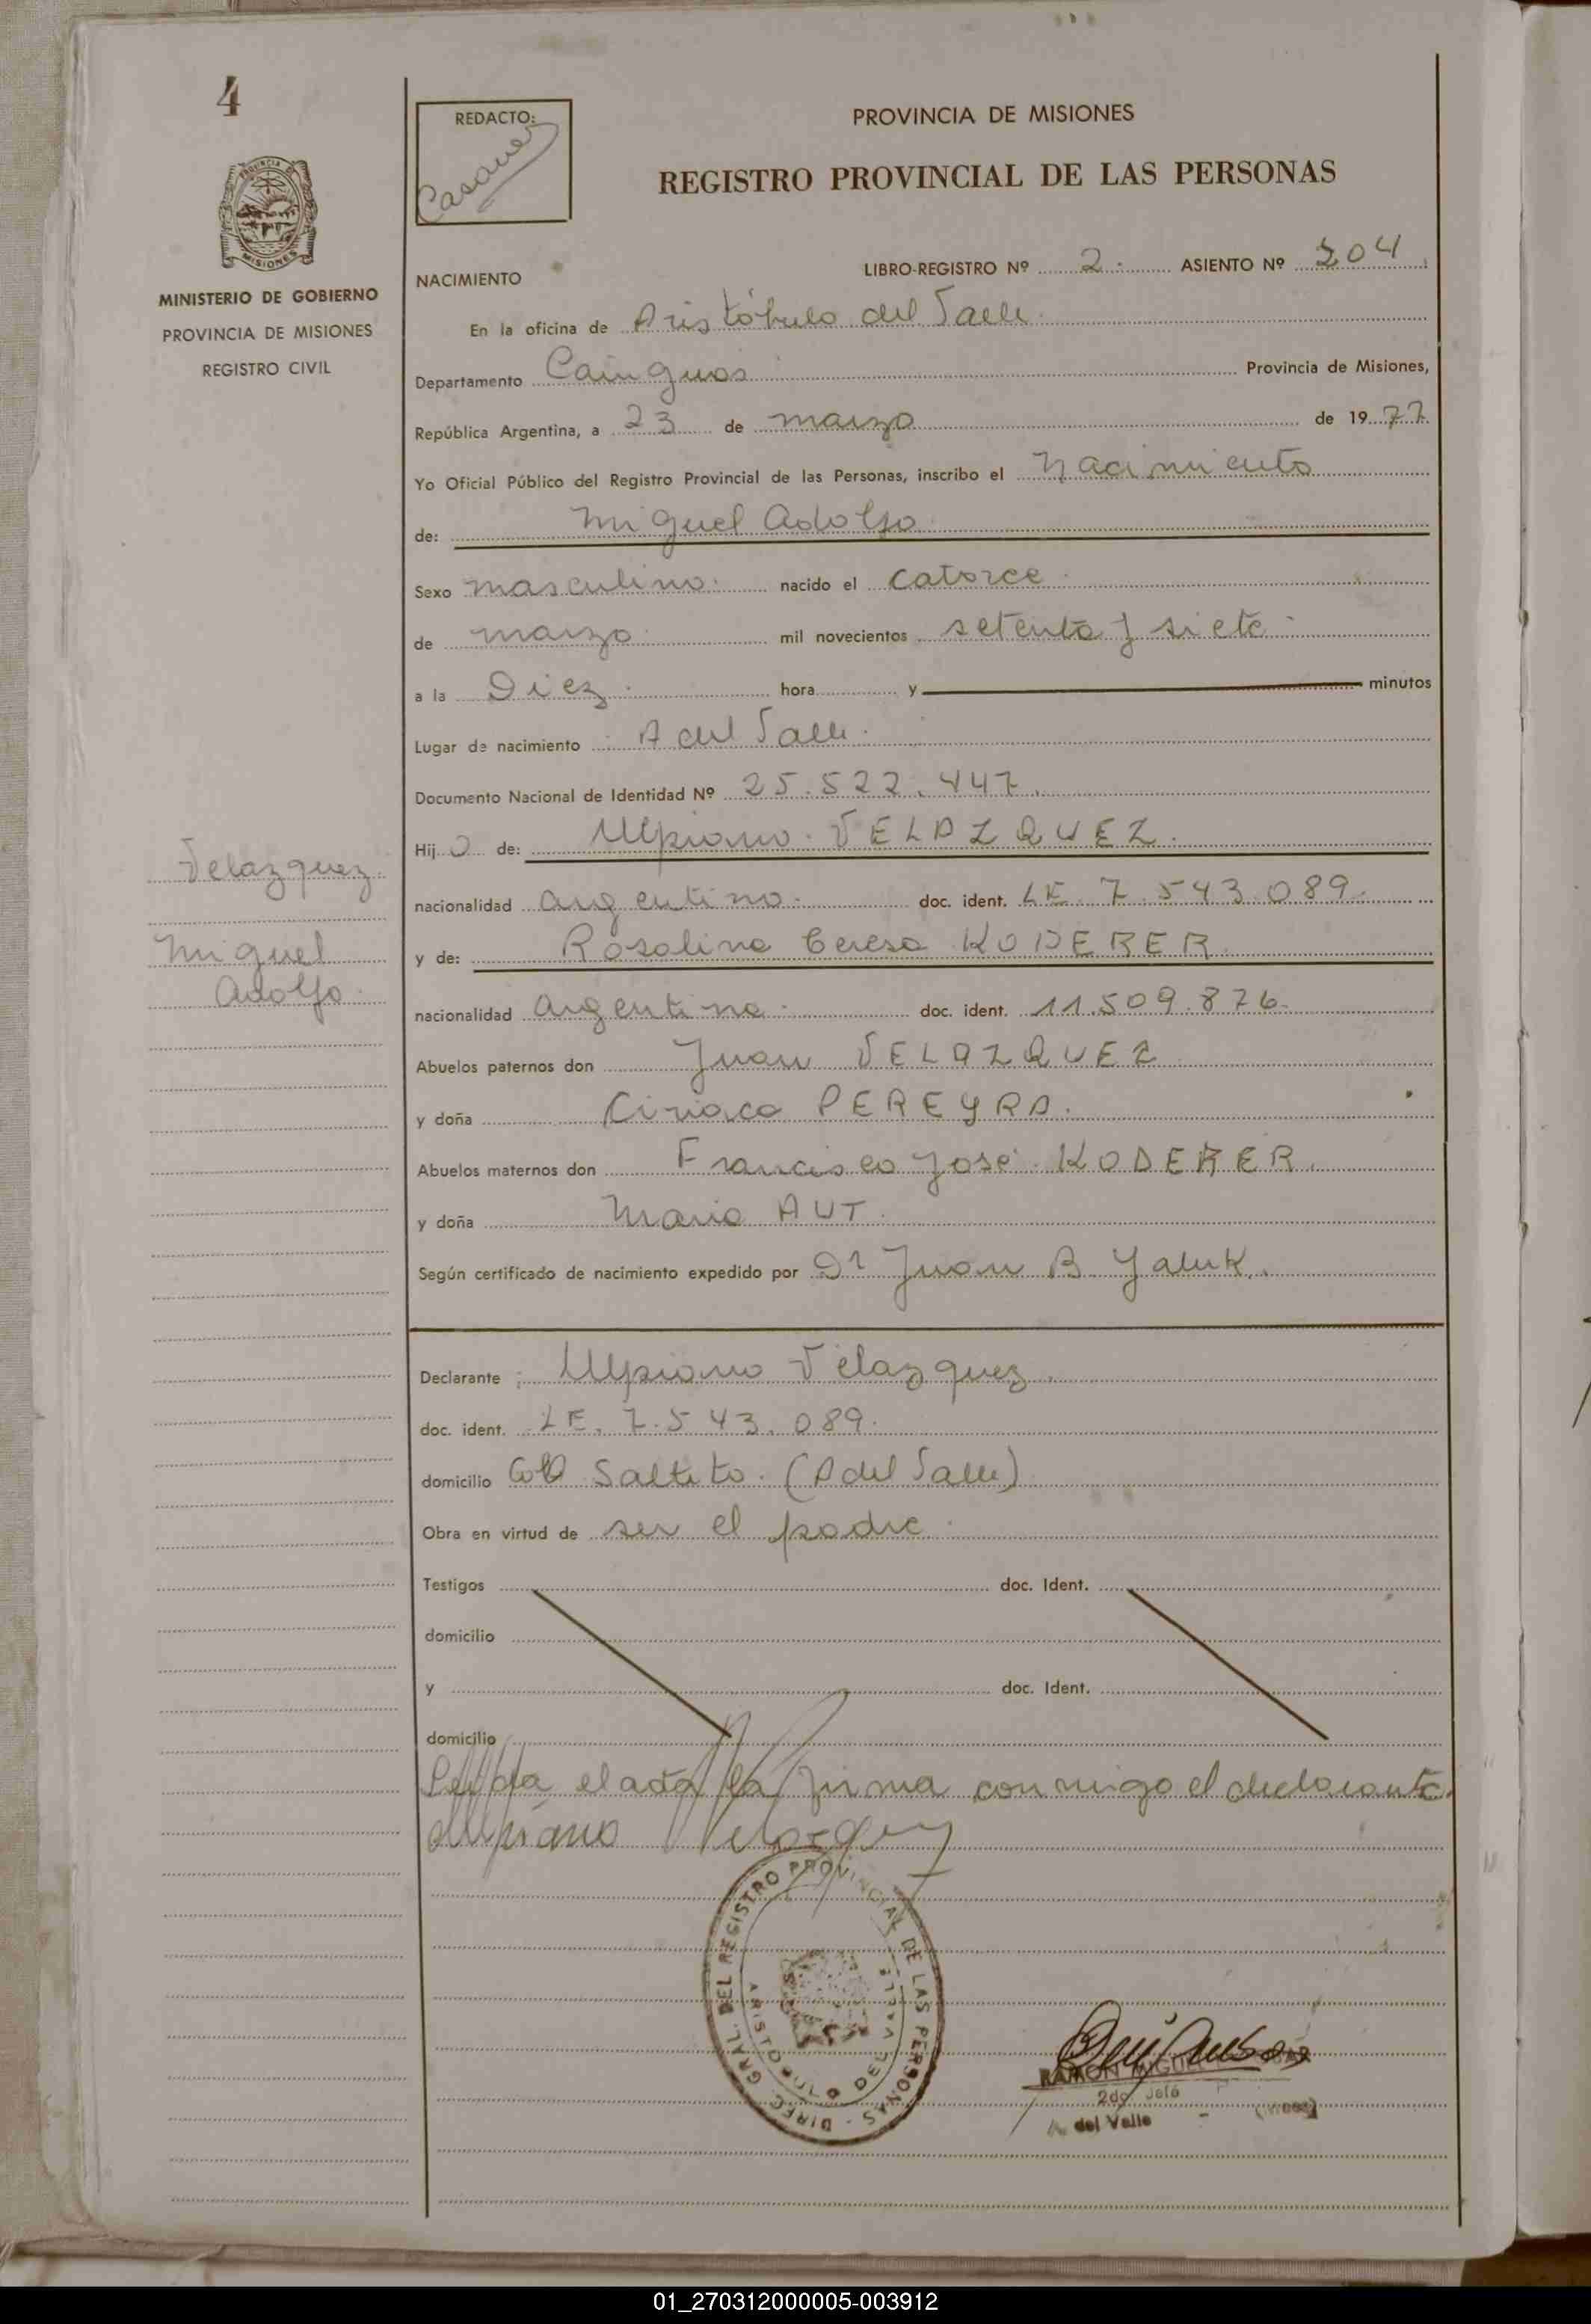 4
REDACTO:
Casanez
PROVINCIA DE MISIONES
REGISTRO PROVINCIAL DE LAS PERSONAS
PROVINCIA DE
MISIONES
MINISTERIO DE GOBIERNO
PROVINCIA DE MISIONES
REGISTRO CIVIL
NACIMIENTO
LIBRO-REGISTRO Nº 2. ASIENTO Nº 204
En la oficina de Aristóbulo del Valle
Departamento Cainguas Provincia de Misiones,
República Argentina, a 23 de marzo de 1977
Yo Oficial Público del Registro Provincial de las Personas, inscribo el Nacimiento
de: Miguel Adolfo
Sexo masculino. nacido el catorce
de marzo mil novecientos setenta y siete
a la Diez hora y minutos
Lugar de nacimiento A del Valle
Documento Nacional de Identidad Nº 25.522.447.
Hijo de: Ulpiano VELAZQUEZ
nacionalidad argentino. doc. ident. LE. 7.543.089.
y de: Rosalina Teresa KODERER
nacionalidad argentina doc. ident. 11.509.876.
Abuelos paternos don Juan VELAZQUEZ
y doña Ciriaca PEREYRA.
Abuelos maternos don Francisco José KODERER.
y doña Maria AUT.
Según certificado de nacimiento expedido por Dr Juan B. Yaluk.
Velazquez
Miguel
Adolfo
Declarante Ulpiano Velazquez.
doc. ident. LE. 7.543.089.
domicilio Col Saltito. (A del Valle)
Obra en virtud de ser el padre
Testigos doc. Ident.
domicilio
y doc. Ident.
domicilio
Leida el acta la firma conmigo el declarante.
Ulpiano Velazquez
DIREC. GRAL. DEL REGISTRO PROVINCIAL DE LAS PERSONAS
ARISTOBULO DEL VALLE
RAMON MIGUEL
2do Jefe
A. del Valle
01_270312000005-003912